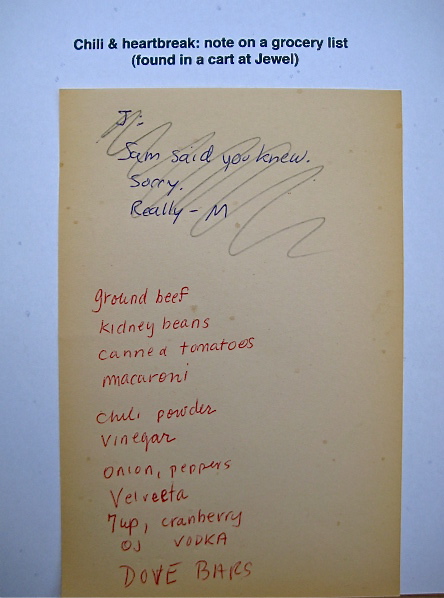 Chili & heartbreak: note on a grocery list
(found in a cart at Jewel)
J:
Sam said you knew.
Sorry.
Really - M
ground beef
kidney beans
canned tomatoes
macaroni
chili powder
vinegar
onion, peppers
Velveeta
7up, cranberry
OJ VODKA
DOVE BARS